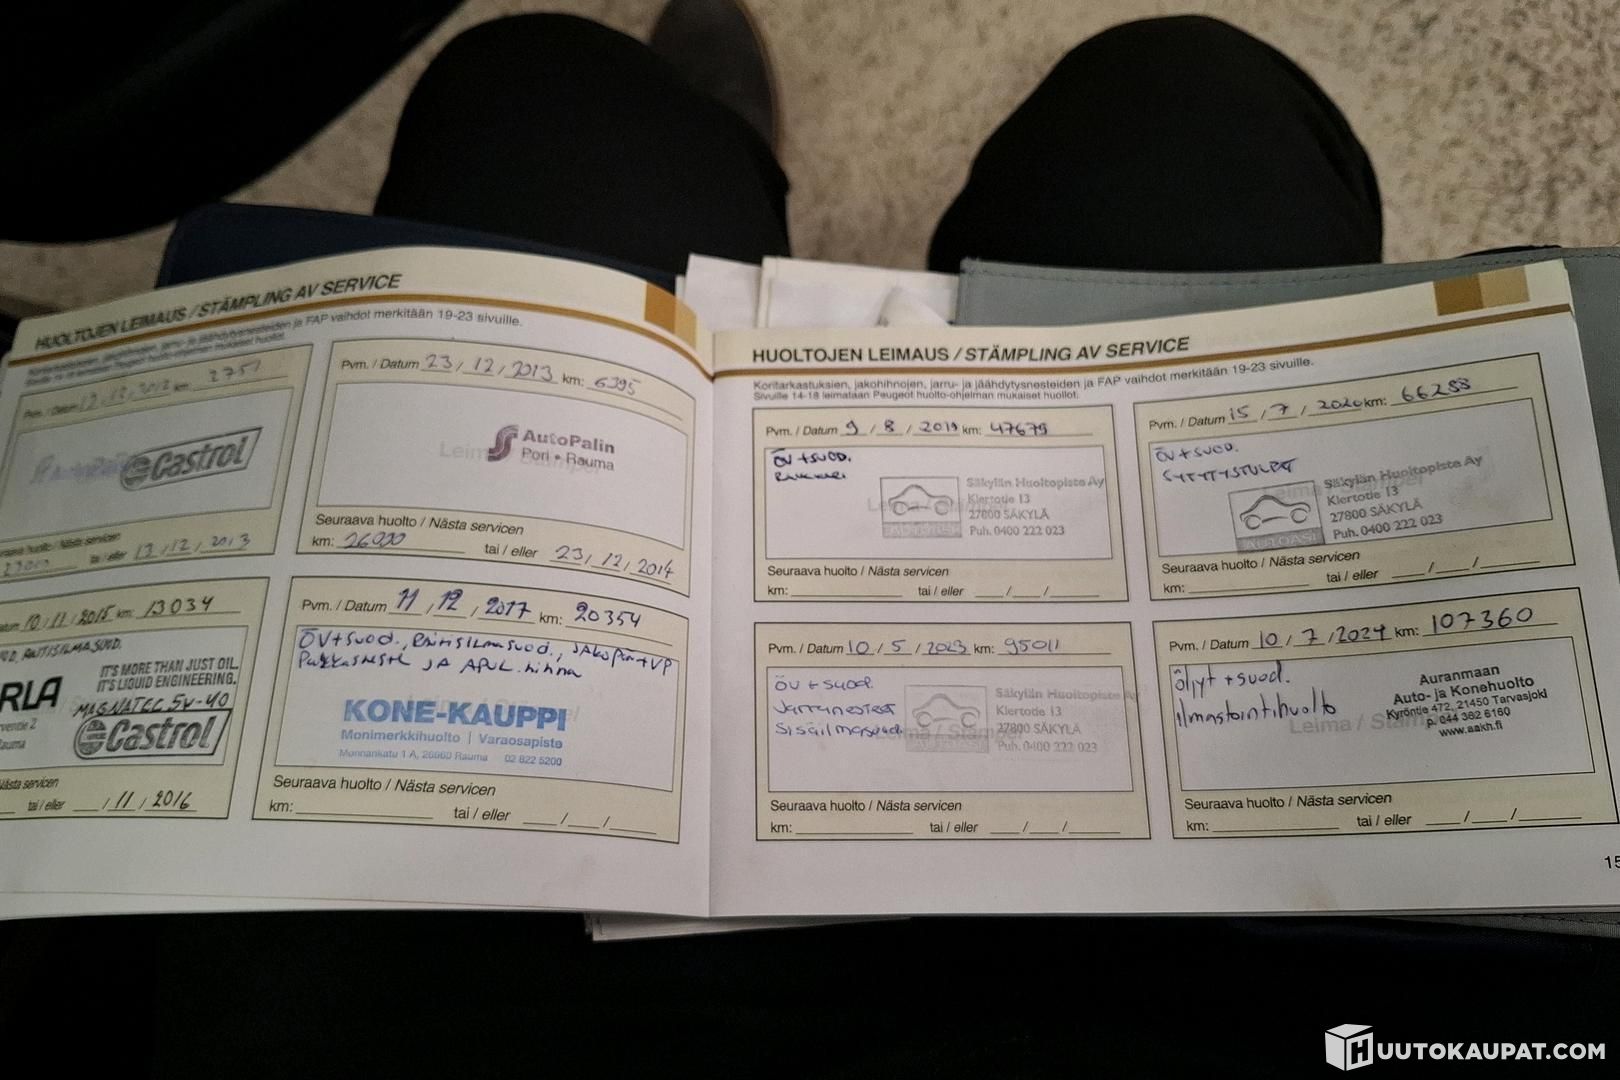 HUOLTOJEN LEIMAUS / STÄMPLING AV SERVICE
Koritarkastuksien, jakohihnojen, jarru- ja jäähdytysnesteiden ja FAP vaihdot merkitään 19-23 sivuille.
Sivuille 14-18 leimataan Peugeot huolto-ohjelman mukaiset huollot.
Pvm. / Datum 12/2012 km: 2751
Castrol
Seuraava huolto / Nästa servicen
tai / eller 13/12/2013
Pvm. / Datum 23/12/2013 km: 6395
Leima / Stämpel
AutoPalin
Pori • Rauma
Seuraava huolto / Nästa servicen
km: 26000 tai / eller 23/12/2014
Datum 10/11/2015 km: 13034
RAITISILMASUOD.
IT'S MORE THAN JUST OIL.
IT'S LIQUID ENGINEERING.
RLA
MAGNATEC 5W-40
Castrol
Nästa servicen
tai / eller /11/2016
Pvm. / Datum 11/12/2017 km: 20354
ÖV+SUOD., Raitisilmasuod., Jakopään+VP
Pakkasneste JA APUL.hihna
KONE-KAUPPI
Monimerkkihuolto | Varaosapiste
Monnankatu 1 A, 26660 Rauma 02 822 5200
Seuraava huolto / Nästa servicen
km: tai / eller / /
HUOLTOJEN LEIMAUS / STÄMPLING AV SERVICE
Koritarkastuksien, jakohihnojen, jarru- ja jäähdytysnesteiden ja FAP vaihdot merkitään 19-23 sivuille.
Sivuille 14-18 leimataan Peugeot huolto-ohjelman mukaiset huollot.
Pvm. / Datum 9/8/2019 km: 47679
ÖV+SUOD.
Säkylän Huoltopiste Ay
Kiertotie 13
27800 SÄKYLÄ
Puh. 0400 222 023
AUTOASI
Seuraava huolto / Nästa servicen
km: tai / eller / /
Pvm. / Datum 15/7/2020 km: 66288
ÖV+SUOD.
SYTYTYSTULPAT
Säkylän Huoltopiste Ay
Kiertotie 13
27800 SÄKYLÄ
Puh. 0400 222 023
AUTOASI
Seuraava huolto / Nästa servicen
km: tai / eller / /
Pvm. / Datum 10/5/2023 km: 95011
ÖV+SUOD.
Jarrunesteet
Sisäilmasuod.
Säkylän Huoltopiste Ay
Kiertotie 13
27800 SÄKYLÄ
Puh. 0400 222 023
AUTOASI
Seuraava huolto / Nästa servicen
km: tai / eller / /
Pvm. / Datum 10/7/2024 km: 107360
Öljyt + suod.
ilmastointihuolto
Leima / Stämpel
Auranmaan
Auto- ja Konehuolto
Kyröntie 472, 21450 Tarvasjoki
p. 044 382 6160
www.aakh.fi
Seuraava huolto / Nästa servicen
km: tai / eller / /
15
HUUTOKAUPAT.COM